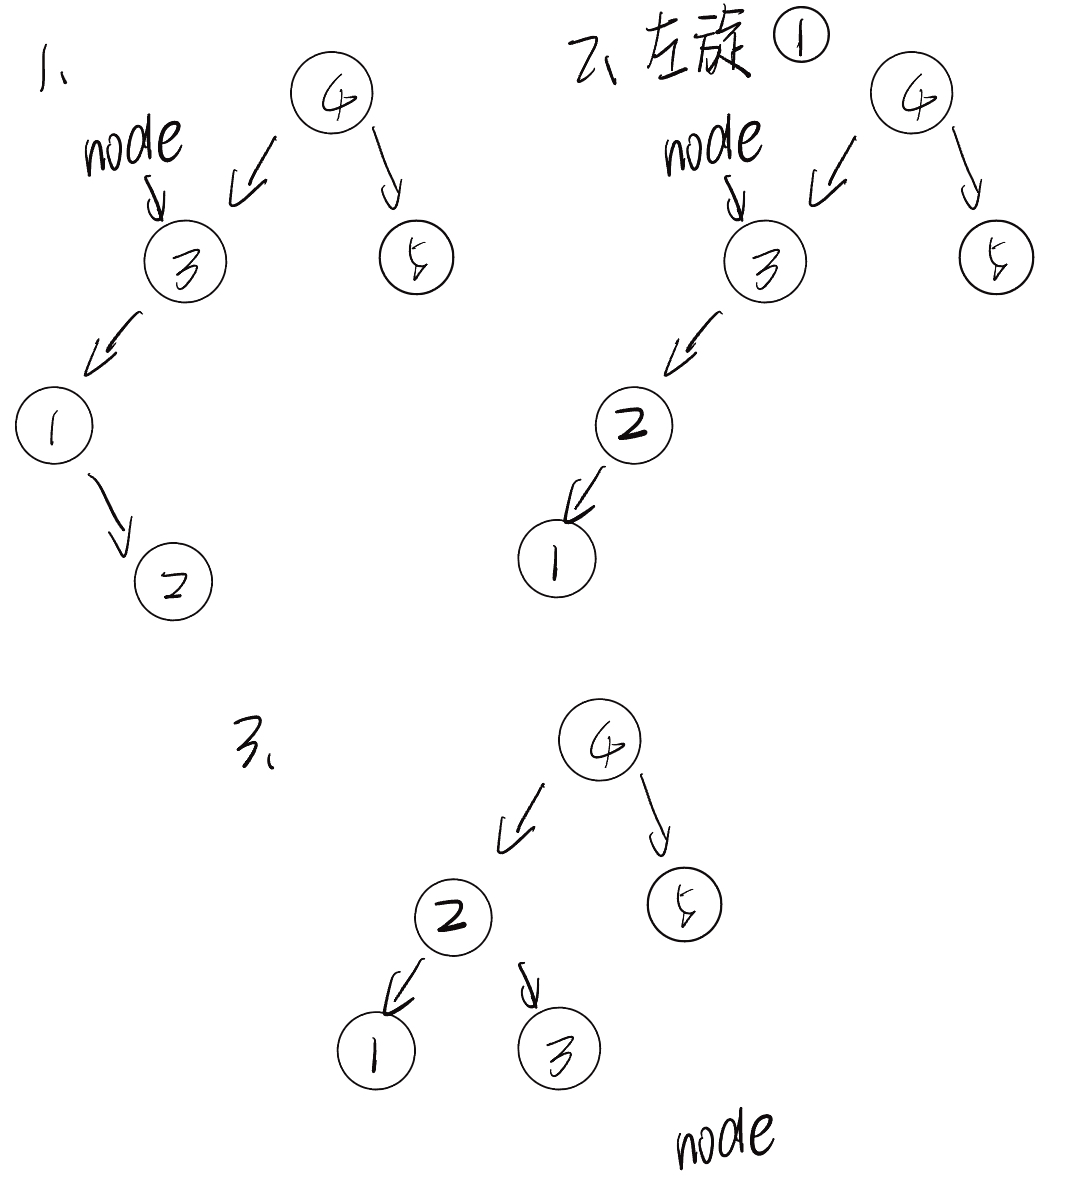 1、
4
node
3
5
1
2
2、左旋 1
4
node
3
5
2
1
3、
4
2
5
1
3
node